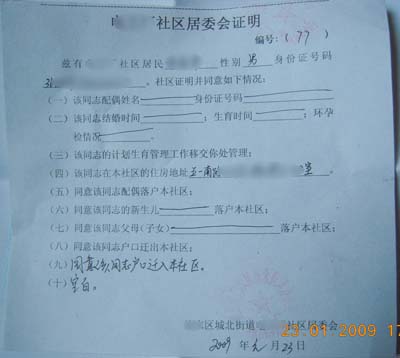 社区居委会证明
编号:(77)
兹有 社区居民 性别 男 身份证号码
社区证明并同意如下情况:
(一)该同志配偶姓名 身份证号码
(二)该同志结婚时间 ; 生育时间 ; 环孕
检情况 ;
(三)该同志的计划生育管理工作移交你处管理;
(四)该同志在本社区的住房地址 室;
(五)同意该同志配偶落户本社区;
(六)同意该同志的新生儿 落户本社区;
(七)同意该同志父母(子女) 落户本社区;
(八)同意该同志户口迁出本社区;
(九)同意该同志户口迁入本社区。
(十)空白。
区城北街道 社区居委会
2009年元月23日
23 01 2009 17